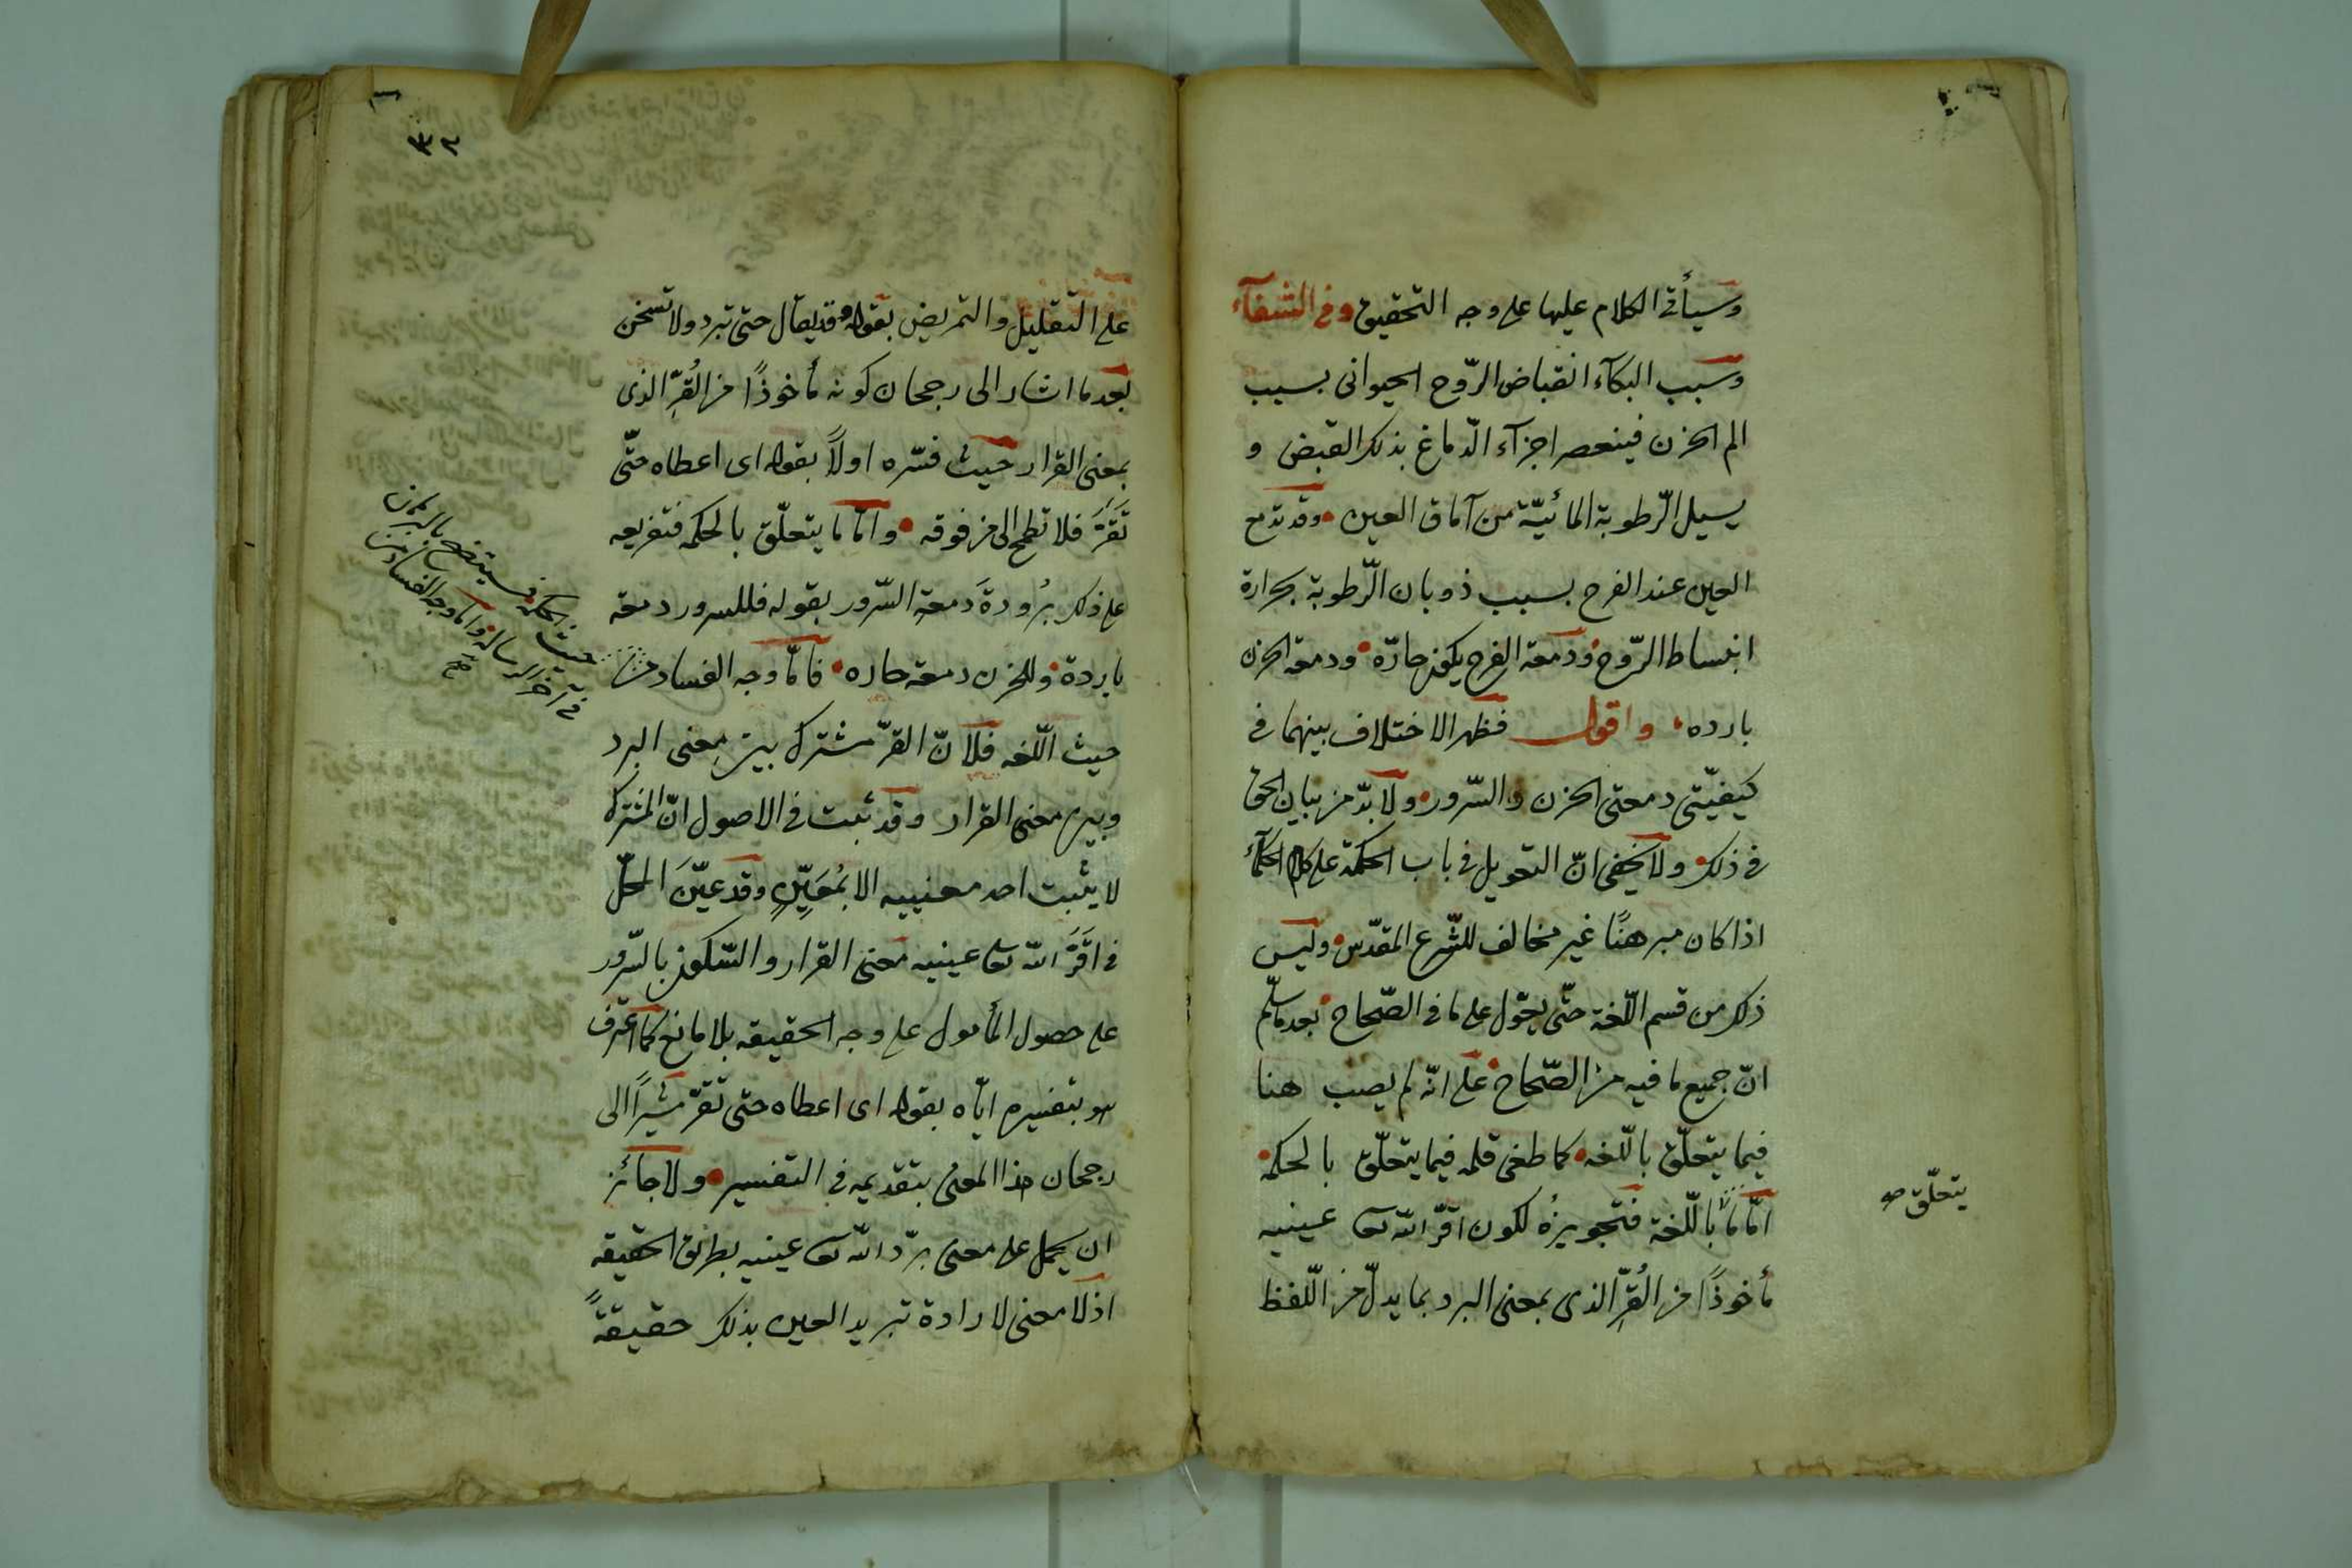 وسيأتى الكلام عليها على وجه التحقيق وفى الشفآء
وسبب البكآء انقباض الرّوح الحيوانى بسبب
الم الحزن فينعصر اجزآء الدّماغ بذلك القبض و
يسيل الرّطوبة المائيّة من آماق العين وقد تدمع
العين عند الفرح بسبب ذوبان الرّطوبة بحرارة
انبساط الرّوح ودمعة الفرح يكون حارّه ودمعة الحزن
بارده واقول فظهر الاختلاف بينهما فى
كيفيّتى دمعتى الحزن والسّرور ولا بدّ من بيان الحق
فى ذلك ولا يخفى انّ التعويل فى باب الحكمة على كلام الحكمآء
اذا كان مبرهنًا غير مخالف للشّرع المقدّس وليس
ذلك من قسم اللّغة حتّى يعوّل على ما فى الصّحاح بعد ما سلّم
انّ جميع ما فيه من الصّحاح على انّه لم يصب هنا
فيما يتعلّق باللّغه كما طغى قلمه فيما يتعلّق بالحكمه
امّا ما باللّغة فتجويزُه لكون اقرّ الله تعا عينيه
يتعلّق صح
مأخوذًا من القُرِّ الذى بمعنى البرد بما يدلّ من اللّفظ
٣٢
على التقليل والتمريض بقوله وقد يقال حتى تبرد ولا تسخن
بعد ما اشار الى رجحان كونه مأخوذًا من القُرِّ الذى
بمعنى القرار حيث فسّره اولاً بقوله اى اعطاه حتّى
تَقَرَّ فلا تطمح الى من فوقه وامّا ما يتعلّق بالحكمه فتفريعه
على ذكر بُرُودةَ دَمعةِ السّرور بقوله فللسرور دمعة
باردة وللحزن دمعة حاره فامّا وجه الفساد من
حيث الحكمه فسيتضح بالبرهان
فى آخر الرساله وامّا وجه الفساد من
صح
حيث اللّغه فلانّ القرّ مشترك بين معنى البرد
وبين معنى القرار وقد ثبت فى الاصول انّ المشترك
لا يثبت احد معنييه الا بمُعَيِّنٍ وقد عيّنَ المحلّ
فى اقَرَّ الله تعا عينيه معنى القرار والسّكون بالسّرور
على حصول المأمول على وجه الحقيقه بلا مانع كما اعترف
هو بتفسيره ايّاه بقوله اى اعطاه حتى تقرّ مشيراً الى
رجحان هذا المعنى بتقديمه فى التفسير ولا جائز
ان يحمل على معنى برّد الله تعا عينيه بطريق الحقيقه
اذ لا معنى لارادة تبريد العين بذلك حقيقةً